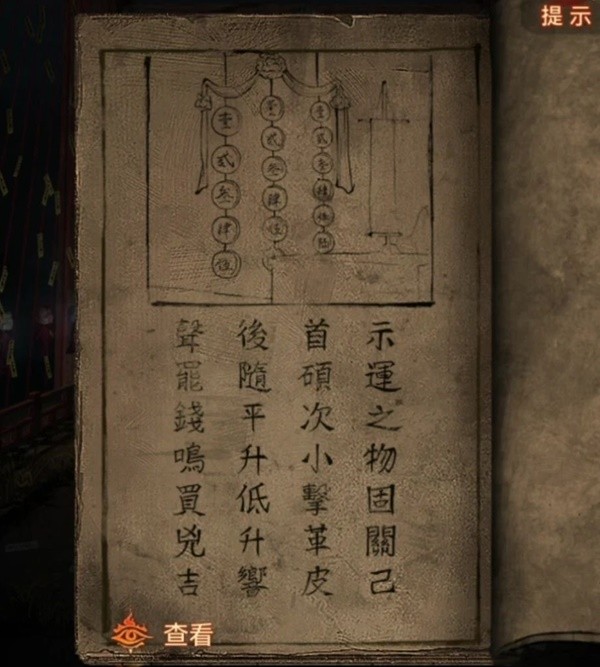 提示
壹
貳
叁
肆
伍
壹
貳
叁
肆
伍
壹
貳
叁
肆
伍
陸
示運之物固關己
首碩次小擊革皮
後隨平升低升響
聲罷錢鳴買兇吉
查看